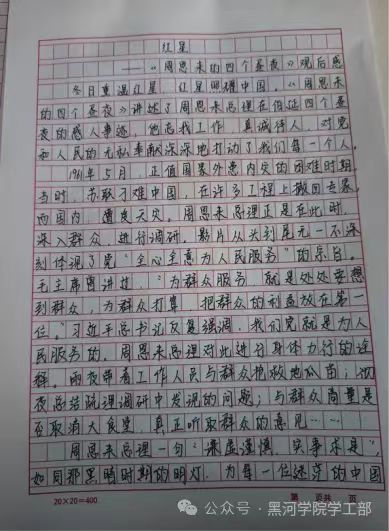 红星
——《周恩来的四个昼夜》观后感
冬日重温红星，红星照耀中国。《周恩来
的四个昼夜》讲述了周恩来总理在伯延四个昼
夜的感人事迹，他忘我工作、真诚待人、对党
和人民的无私奉献深深地打动了我们每一个人。
1961年5月，正值国家外患内灾的困难时期
当时，苏联刁难中国，在许多工程上撤回专家，
而国内，遭度天灾。周恩来总理正是在此时，
深入群众，进行调研。影片从头到尾无一不深
刻体现了党“全心全意为人民服务”的宗旨。
毛主席曾讲过，“为群众服务，就是处处要想
到群众，为群众打算，把群众的利益放在第一
位。”习近平总书记反复强调，我们党就是为人
民服务的。周恩来总理对此进行身体力行的诠
释。雨夜带着工作人员与群众抢救地瓜苗；深
夜总结梳理调研中发现的问题；与群众商量是
否取消大食堂，真正听取群众的意见……
周恩来总理一句“谦虚谨慎，实事求是”，
如同那黑暗时期的明灯，为每一位迷茫的中国
20×20=400
第 页共 页
公众号·黑河学院学工部